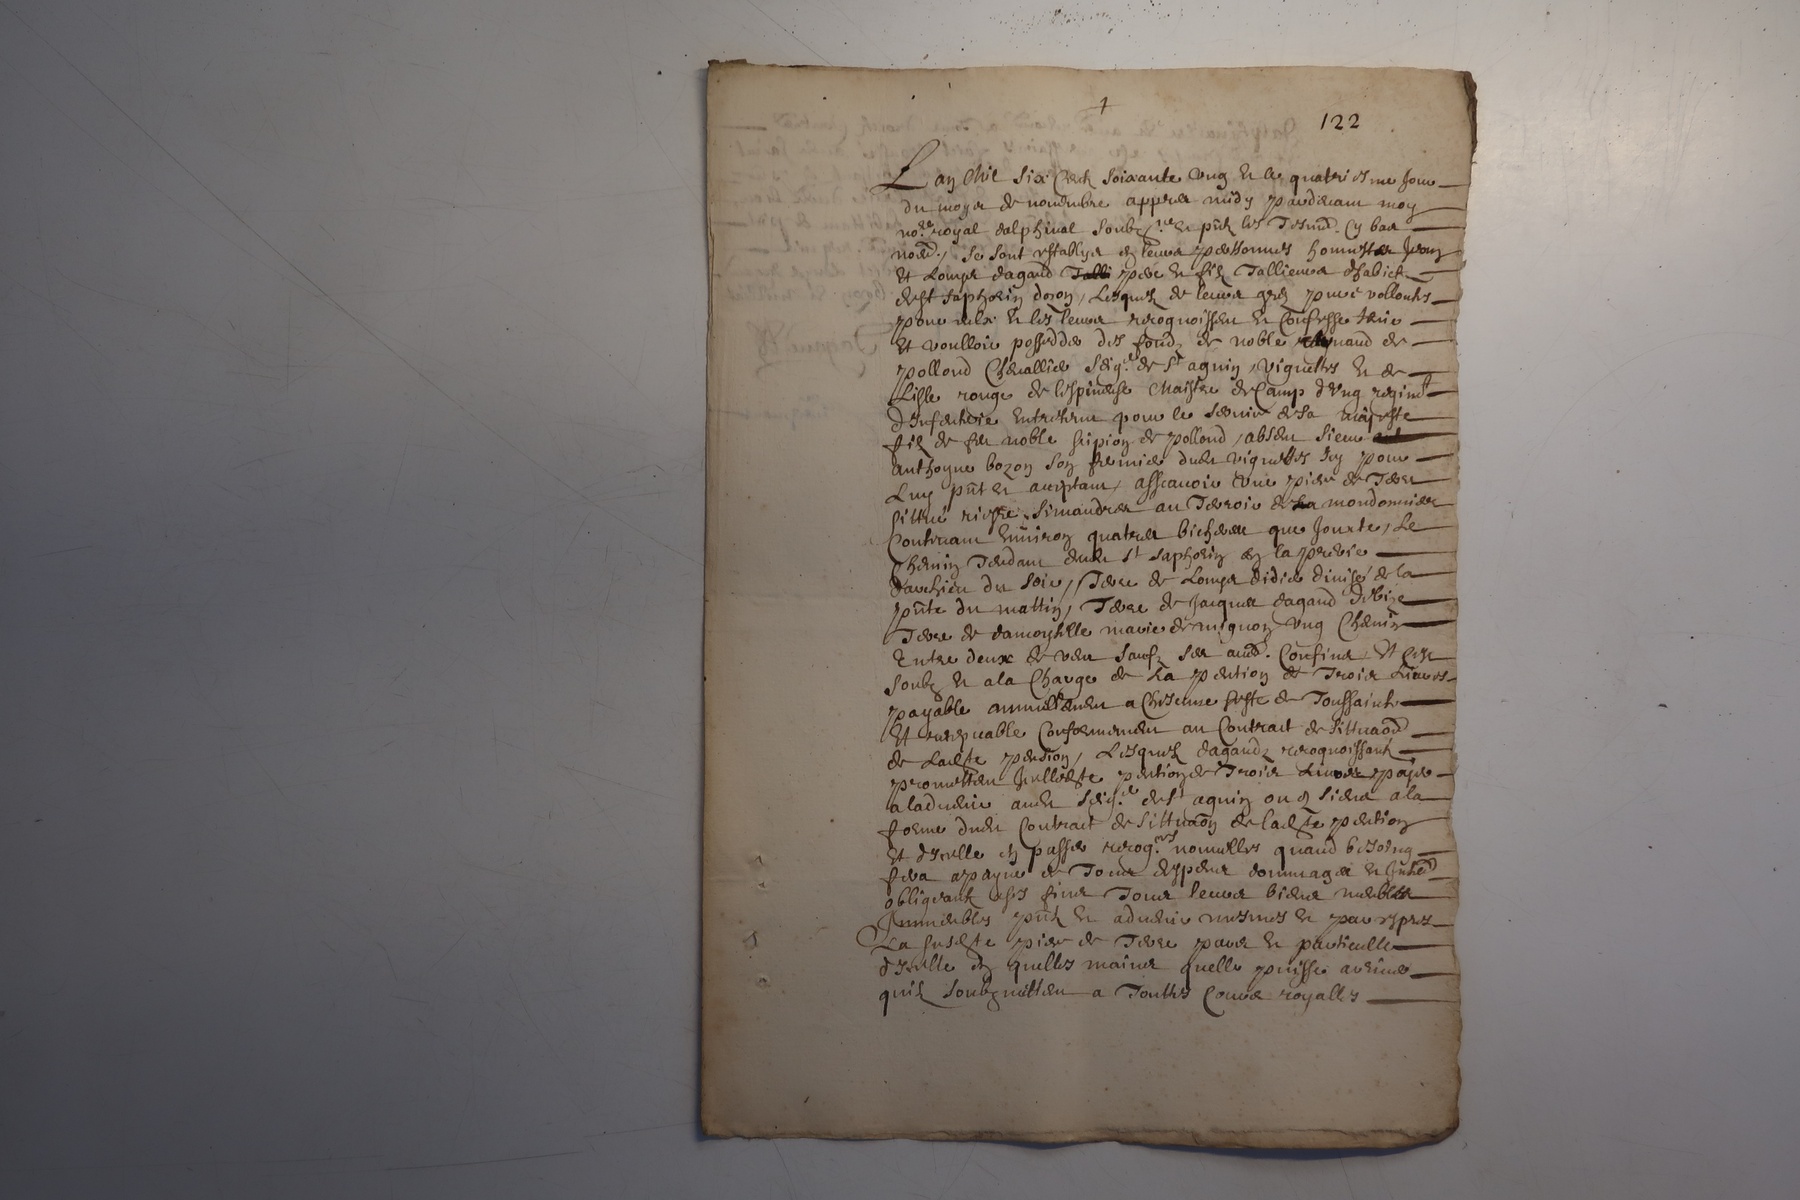 122
L an Mil six Centz soixante ung et le quatriesme Jour
du moys de novembre appres midy pardevant moy
no.re royal dalphinal soubz.né et pntz les Tesmd. Cy bas
nomd., se sont establys en leurs personnes honnestes Jean
Et Louys dagand pere et filz Tallieurs dhabictz
de st saphorin dozon, Lesquelz de leurs grez pure vollontés
pour eulx et les leurs recognoissent et Confesse tenir
Et voulloir posseder des fondz de noble de
polloud Chevallier seig.r de st agnin, vignettes et de
Lisle rouge de lespinasse Maistre de Camp dUng regimt
dInfenterie Entretenu pour le service de sa majeste
filz de feu noble sipion de polloud, absent sieur
Anthoyne bozon son fermier dudt vignettes Icy pour
Luy pnt et aceptant, assavoir une piece de Terre
sittué riesre simandres au Terroir de la mondonniere
Contenant Environ quatres bicherees que Jouxte, Le
Chemin Tendant dudt st saphorin en la prerie
davehieu du soir, Terre de Louys didier divisé de la
pnte du mattin, Terre de Jacques dagand de bize
Terre de damoyselle marie de mignon ung Chemin
Entre deux de vent saufz ses aud. Confins, Et Cest
soubz et a la Charge de La pention de Troix Livres
payable annuellement a Chescune feste de Toussaintz
Et conforemement au Contract de
de Ladte pension, Lesquelz dagandz recognoissantz
promettent Icelle dte pention de Troix Livres payer
a ladvenir audt seig.r de st agnin ou es siens a la
forme dudt Contract de de ladte pention
Et dIcelle en passer recog.ces nouvelles quand besoing
sera a payne de Tous despens dommages et Inthd
obligeantz a ses fins Tous leurs biens meubles
Immeubles pntz et advenir mesmes et par expres
La susdte piece de Terre pars et particelle
dIcelle en quelles mains quelle puisse arriver
quilz soubzmettent a Touttes Cours royalles